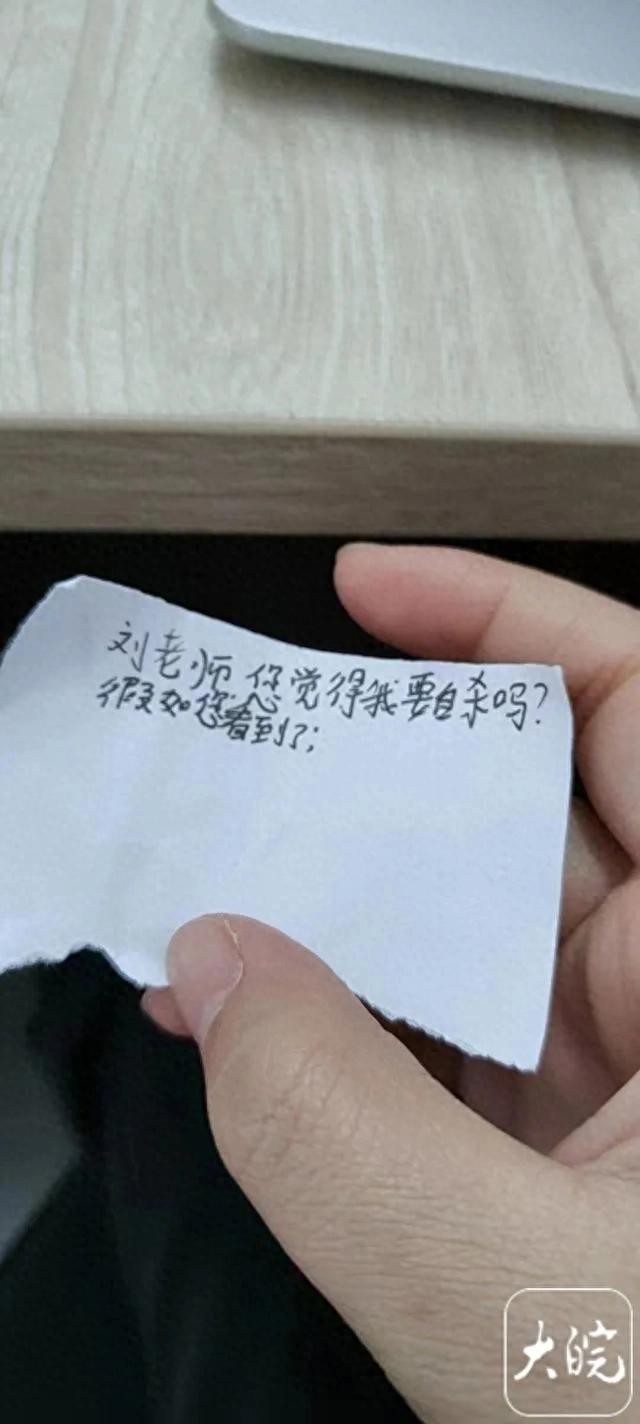 刘老师 你觉得我要自杀吗?
假如您看到了;
大皖